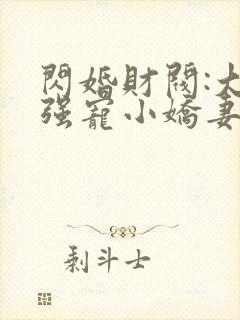 閃婚財閥:大
强寵小嬌妻
剩斗士